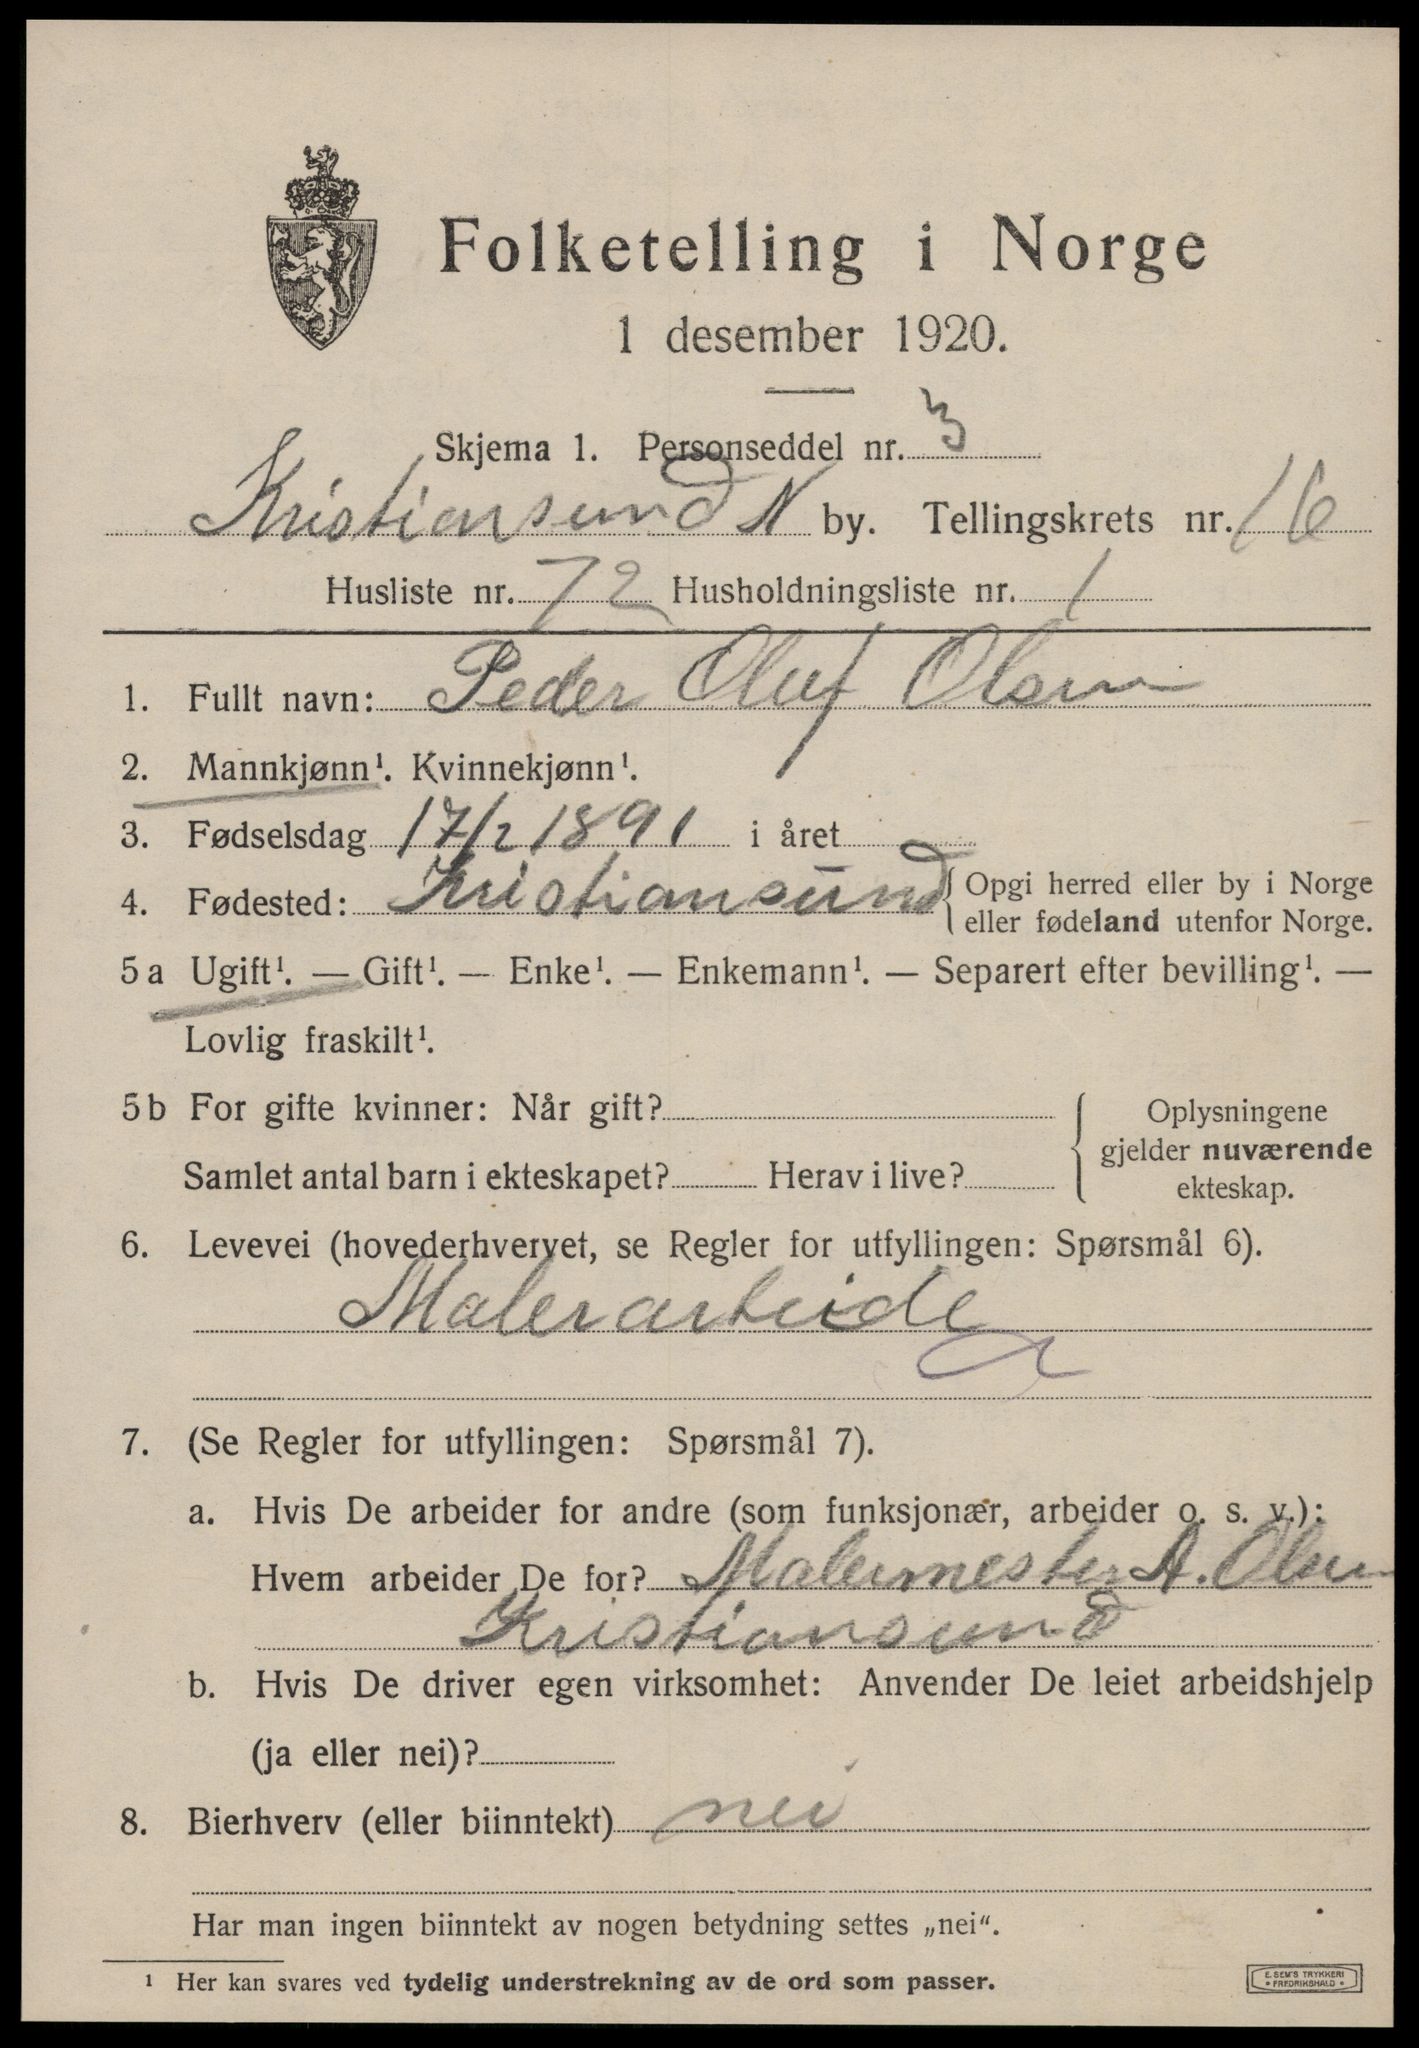 Folketelling i Norge
1 desember 1920.
Skjema 1. Personseddel nr. 3
Kristiansund N by. Tellingskrets nr. 16
Husliste nr. 72 Husholdningsliste nr. 1
1. Fullt navn: Peder Oluf Olsen
2. Mannkjønn¹. Kvinnekjønn¹.
3. Fødselsdag 17/2 1891 i året
4. Fødested: Kristiansund { Opgi herred eller by i Norge
eller fødeland utenfor Norge.
5a Ugift¹. — Gift¹. — Enke¹. — Enkemann¹. — Separert efter bevilling¹. —
Lovlig fraskilt¹.
5b For gifte kvinner: Når gift?
Samlet antal barn i ekteskapet? Herav i live?
Oplysningene
gjelder nuværende
ekteskap.
6. Levevei (hovederhvervet, se Regler for utfyllingen: Spørsmål 6).
Malerarbeide
7. (Se Regler for utfyllingen: Spørsmål 7).
a. Hvis De arbeider for andre (som funksjonær, arbeider o. s. v.):
Hvem arbeider De for? Malermester A. Olsen
Kristiansund
b. Hvis De driver egen virksomhet: Anvender De leiet arbeidshjelp
(ja eller nei)?
8. Bierhverv (eller biinntekt) nei
Har man ingen biinntekt av nogen betydning settes „nei“.
¹ Her kan svares ved tydelig understrekning av de ord som passer.
E. SEM'S TRYKKERI
FREDRIKSHALD